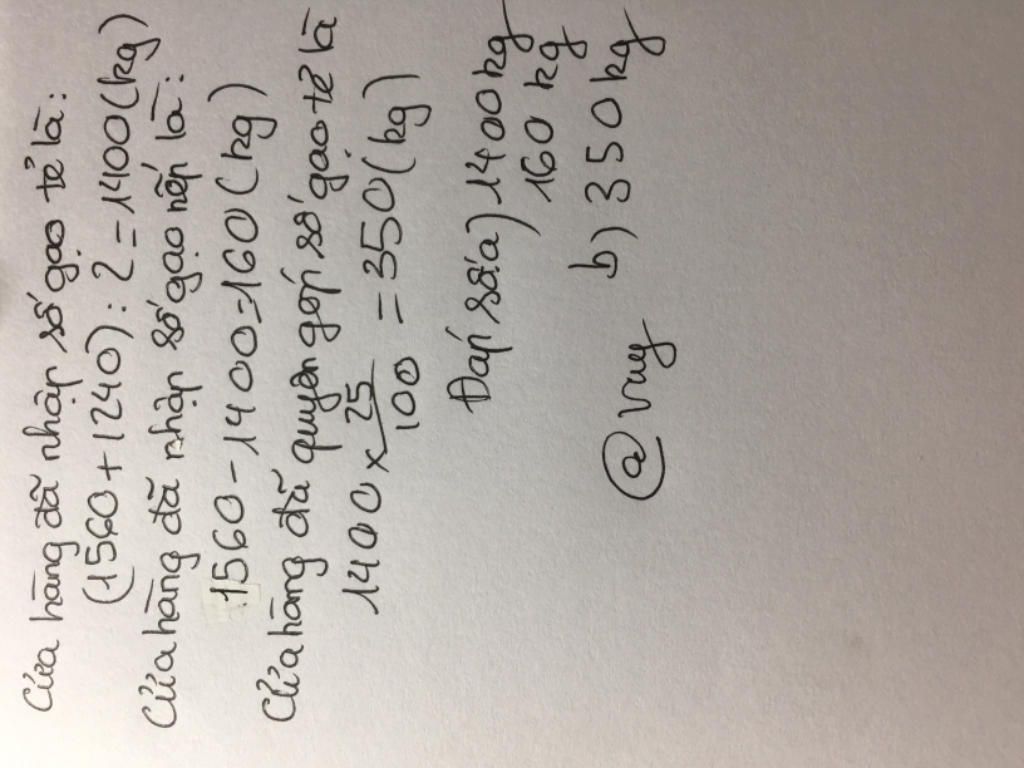 Cửa hàng đã nhập số gạo tẻ là:
(1560 + 1240) : 2 = 1400 (kg)
Cửa hàng đã nhập số gạo nếp là:
1560 - 1400 = 160 (kg)
Cửa hàng đã quyên góp số gạo tẻ là
1400 x 25/100 = 350 (kg)
Đáp số a) 1400 kg
160 kg
b) 350 kg
@ vuy